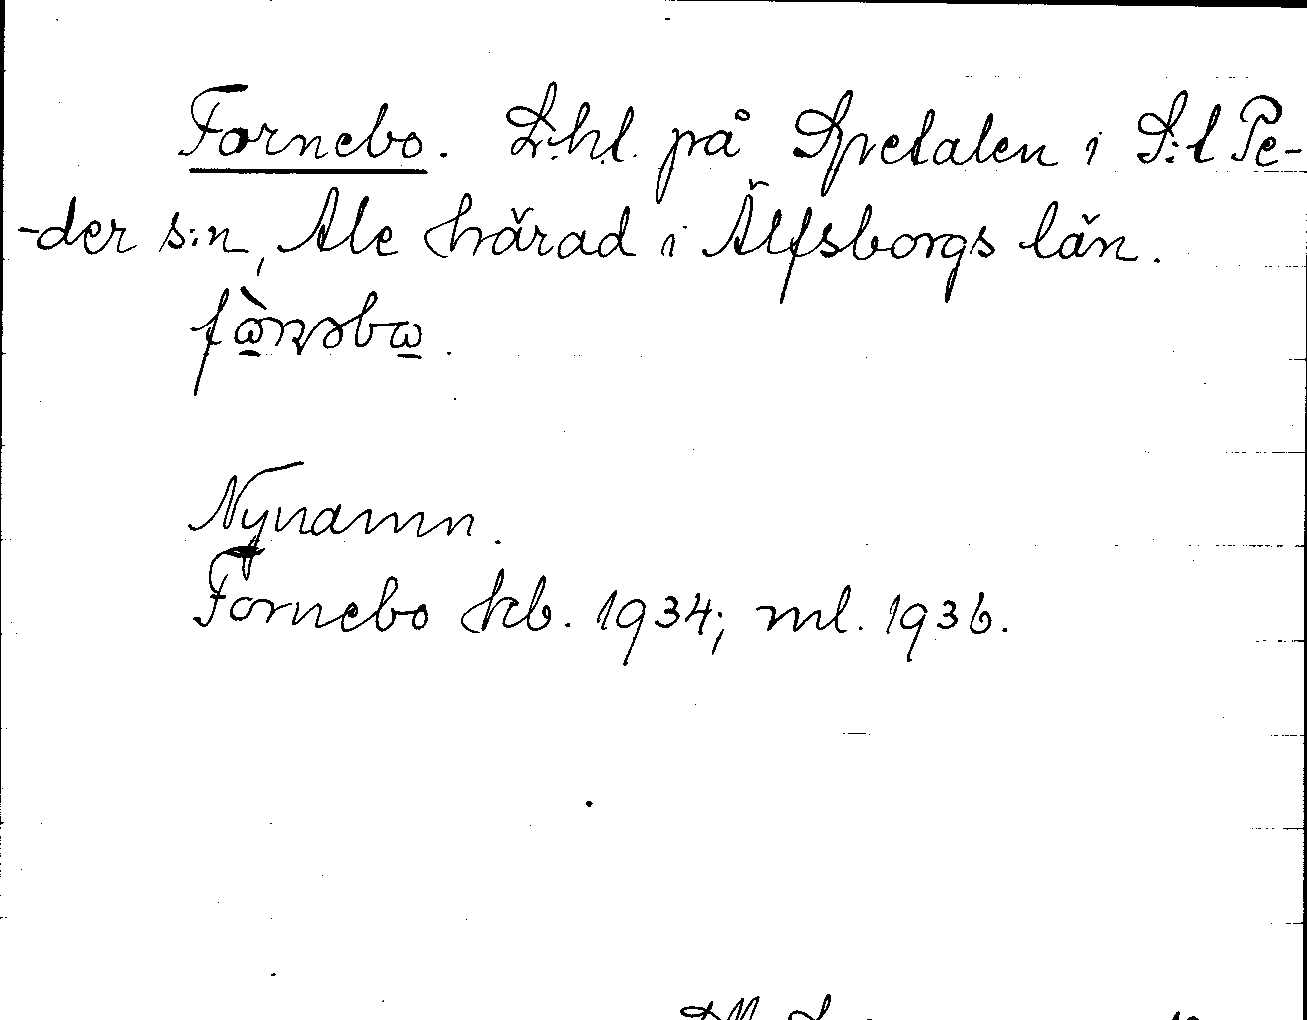 Fornebo. L:ht. på Spetalen i S:t Pe-
-der s:n, Ale härad i Älfsborgs län.
Nynamn.
Fornebo kb. 1934; ml. 1936.